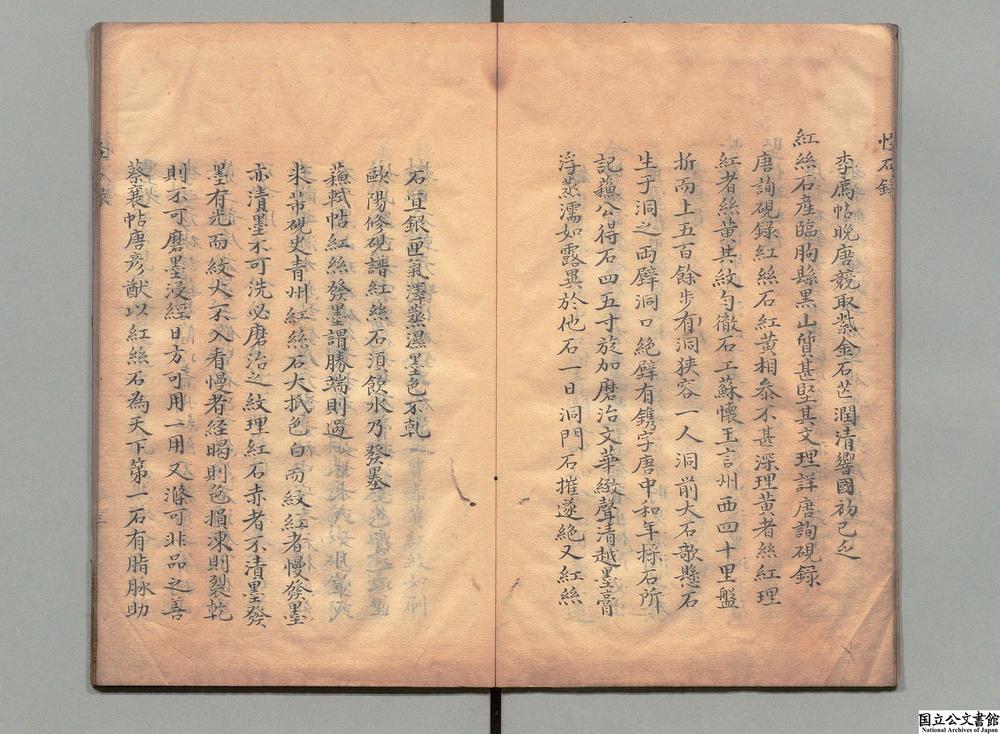 怪石録
李廌帖晚唐競取紫金石芒潤清響國初已乏
紅絲石產臨朐縣黑山質甚堅其文理詳唐詢硯録
唐詢硯録紅絲石紅黃相叅不甚深理黃者絲紅理
紅者絲黃其紋勻徹石工蘇懷玉言州西四十里盤
折而上五百餘步有洞狹容一人洞前大石欹懸石
生于洞之両壁洞口絕壁有鐫字唐中和年採石所
記蘓公得石四五寸旋加磨治文華緻聲清越墨膏
浮蒸濡如露異於他石一日洞門石摧遂絕又紅絲
石宜銀匣氣澤蒸濕墨色不乾
歐陽修硯譜紅絲石湏飲水乃發墨
蘓軾帖紅絲發墨謂勝端則過
米芾硯史青州紅絲石大抵色白而紋紅者慢發墨
亦漬墨不可洗必磨治之紋理紅石赤者不漬墨發
墨有光而紋大不入看慢者經暍則色損凍則裂乾
則不可磨墨浸經日方可用一用又滌可非品之善
蔡襄帖唐彥猷以紅絲石為天下第一石有脂脉助
国立公文書館
National Archives of Japan